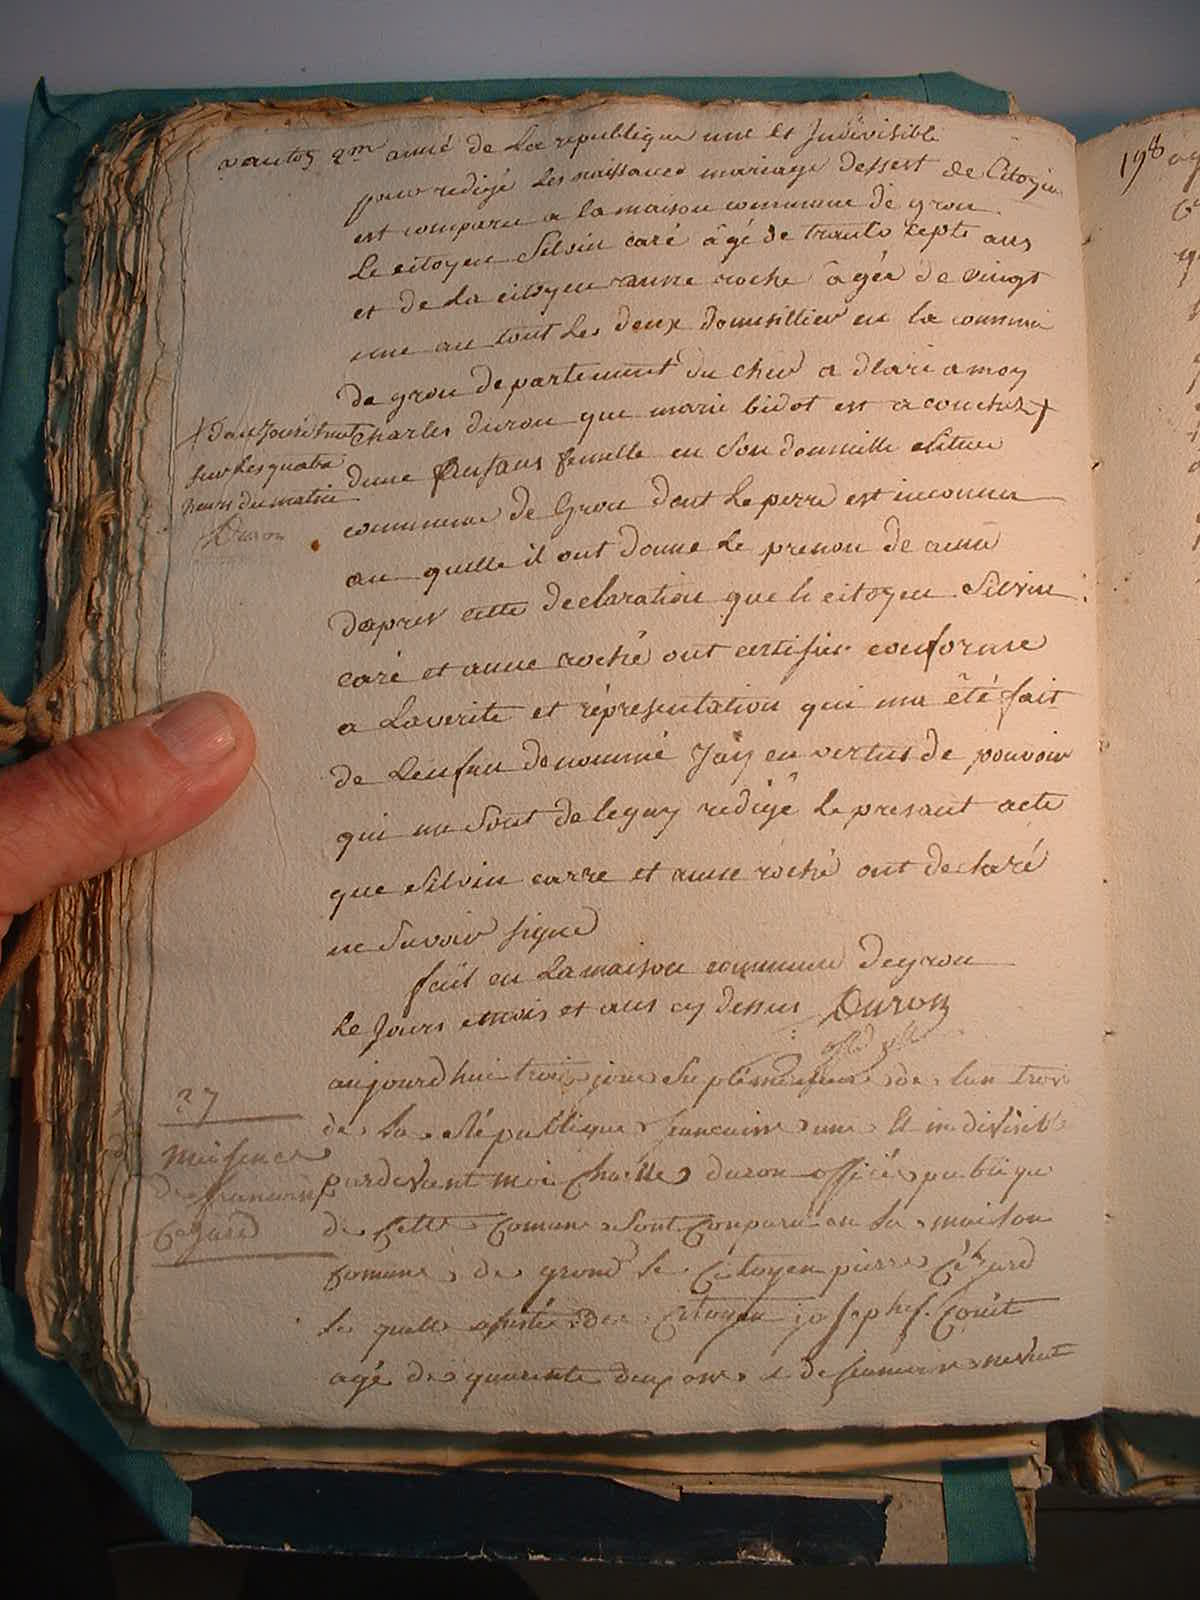 2m anné de La republique une et Indivisible
pour redigé les naissance mariage dessest de Citoyen
est comparu a la maison commune de grou
Le citoyen Silvin caré âgé de trante sept ans
et de la citoyen anne roche âgée de vingt
une an tout les deux domisillier en la commune
de grou departement du cher a dlaré a moy
Charles duron que marie bidot est acouchez +
+ 
sur les quatre
heurs du matin
Duron
dune Ansans femelle en Son domisille
commune de Grou dont le perre est inconnu
au quelle il ont donne le prenon de anne
dapres cette declaration que le citoyen Silvin
caré et anne roché ont certifier conforme
a Laverite et représentation qui ma êté fait
de Lenfan denommé Jay en vertus de pouvoir
qui me Sont delegay redigé le presant acte
que Silvin carre et anne roché ont declaré
ne Savoir signe
fait en La maison commune de grou
Le Jours et mois et ans cy dessus Duron
aujourdhui trois jour Suplémenter de lan trois
de La République francaise une Et indivisible
pardevant moi Charlle duron officié publique
de Cette Comune Sont Comparu en la maison
Comune de grond le Citoyen pierre Cézard
27
de francoise
Cezard
le quelle asisté de Citoyen josephe Couét
agé de quarente deux ans & de